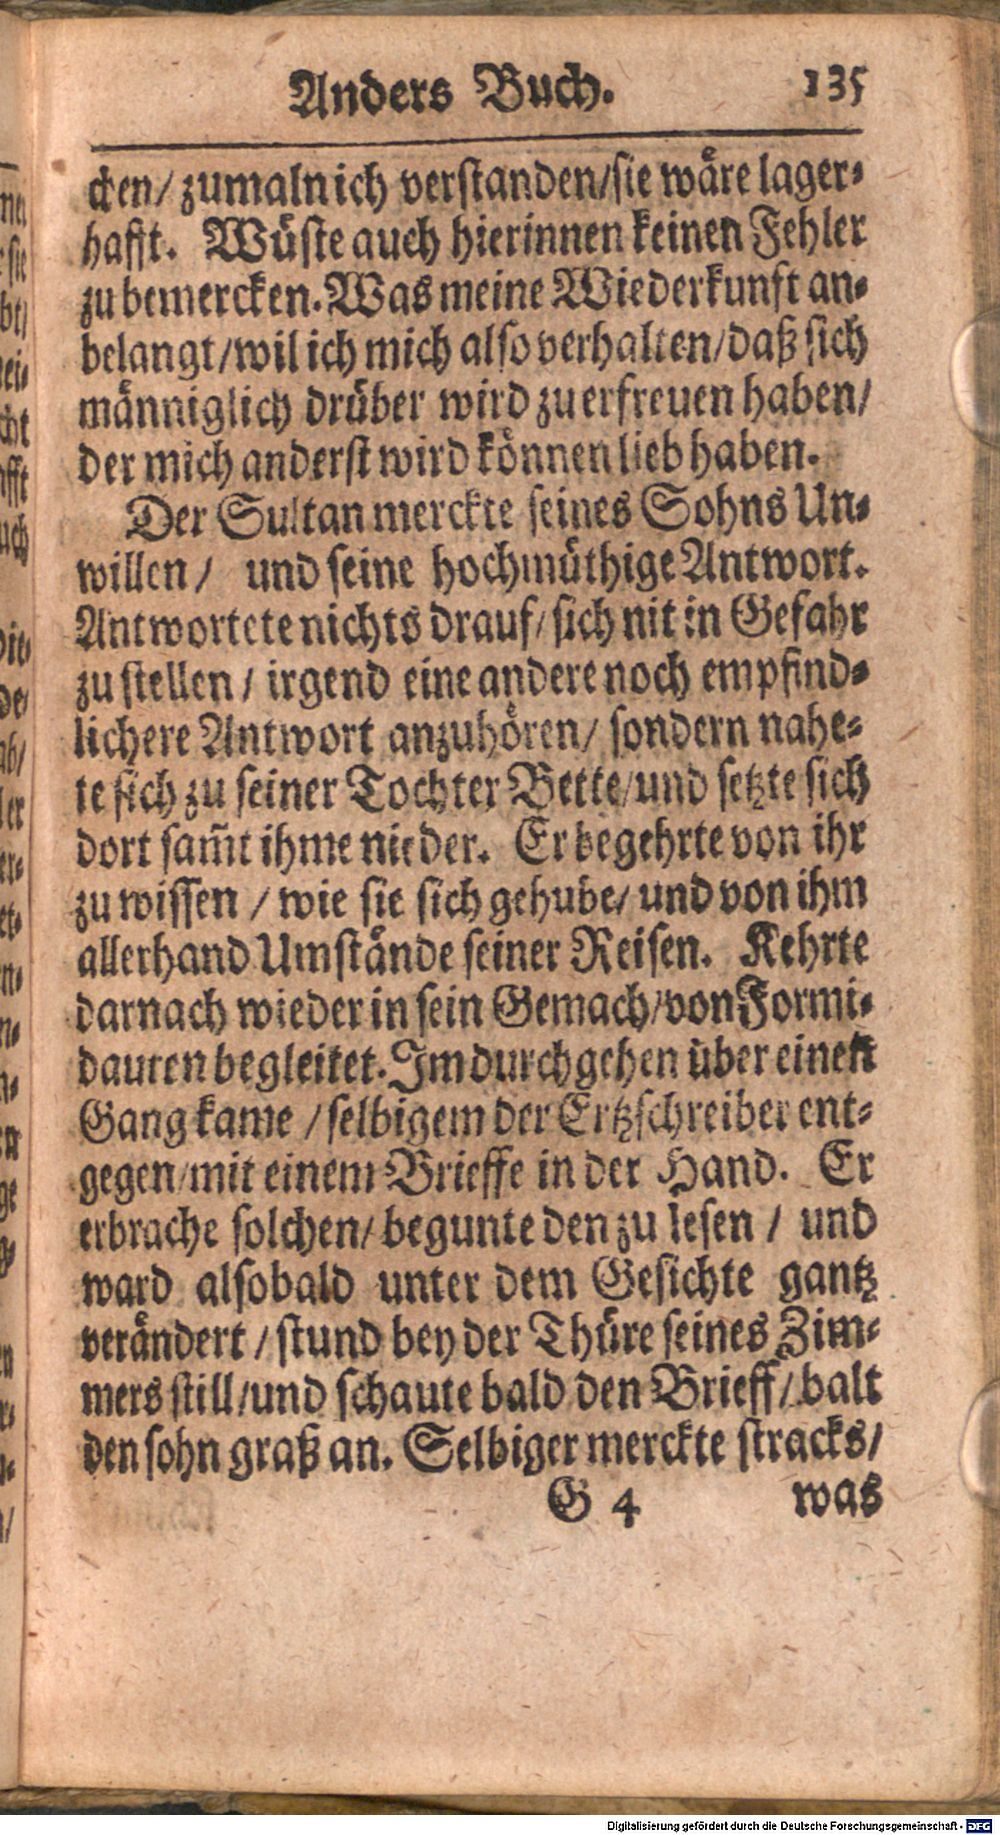 Anders Buch. 135
cken/ zumaln ich verstanden/sie wåre lager-
hafft. Wüste auch hierinnen keinen Fehler
zu bemercken. Was meine Wiederkunft an-
belangt/wil ich mich also verhalten/daß sich
månniglich drüber wird zu erfreuen haben/
der mich anderst wird können lieb haben.
Der Sultan merckte seines Sohns Un-
willen/ und seine hochmüthige Antwort.
Antwortete nichts drauf/ sich nit in Gefahr
zu stellen/ irgend eine andere noch empfind-
lichere Antwort anzuhören/ sondern nahe-
te sich zu seiner Tochter Bette/und setzte sich
dort sam̃t ihme nieder. Er begehrte von ihr
zu wissen / wie sie sich gehube/ und von ihm
allerhand Umstånde seiner Reisen. Kehrte
darnach wieder in sein Gemach/von Formi-
dauren begleitet. Im durchgehen über einen
Gang kame / selbigem der Ertzschreiber ent-
gegen/mit einem Brieffe in der Hand. Er
erbrache solchen/ begunte den zu lesen / und
ward alsobald unter dem Gesichte gantz
veråndert / stund bey der Thüre seines Zim-
mers still/und schaute bald den Brieff/ balt
den sohn graß an. Selbiger merckte stracks/
G 4 was
Digitalisierung gefördert durch die Deutsche Forschungsgemeinschaft - DFG